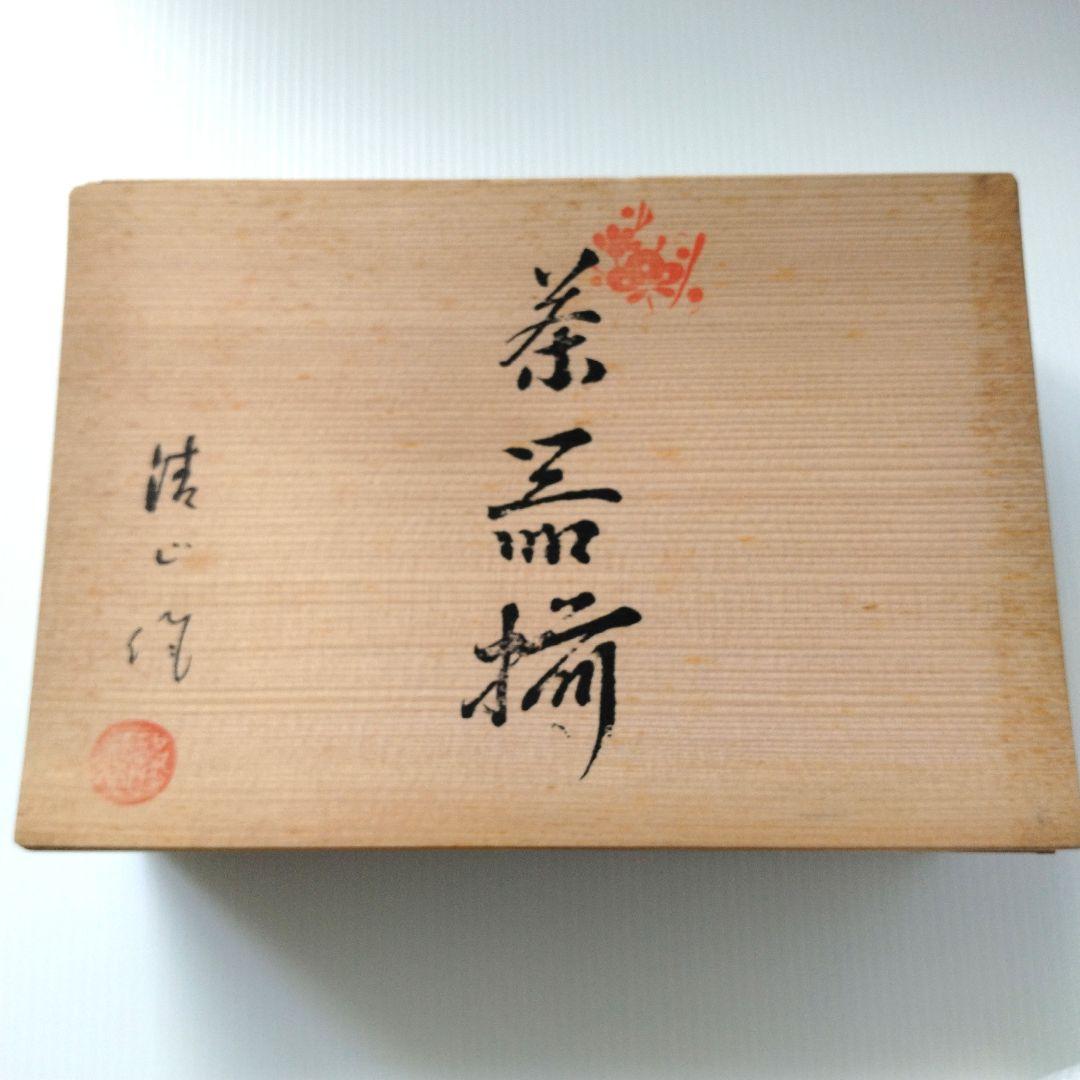 茶器揃
清山作